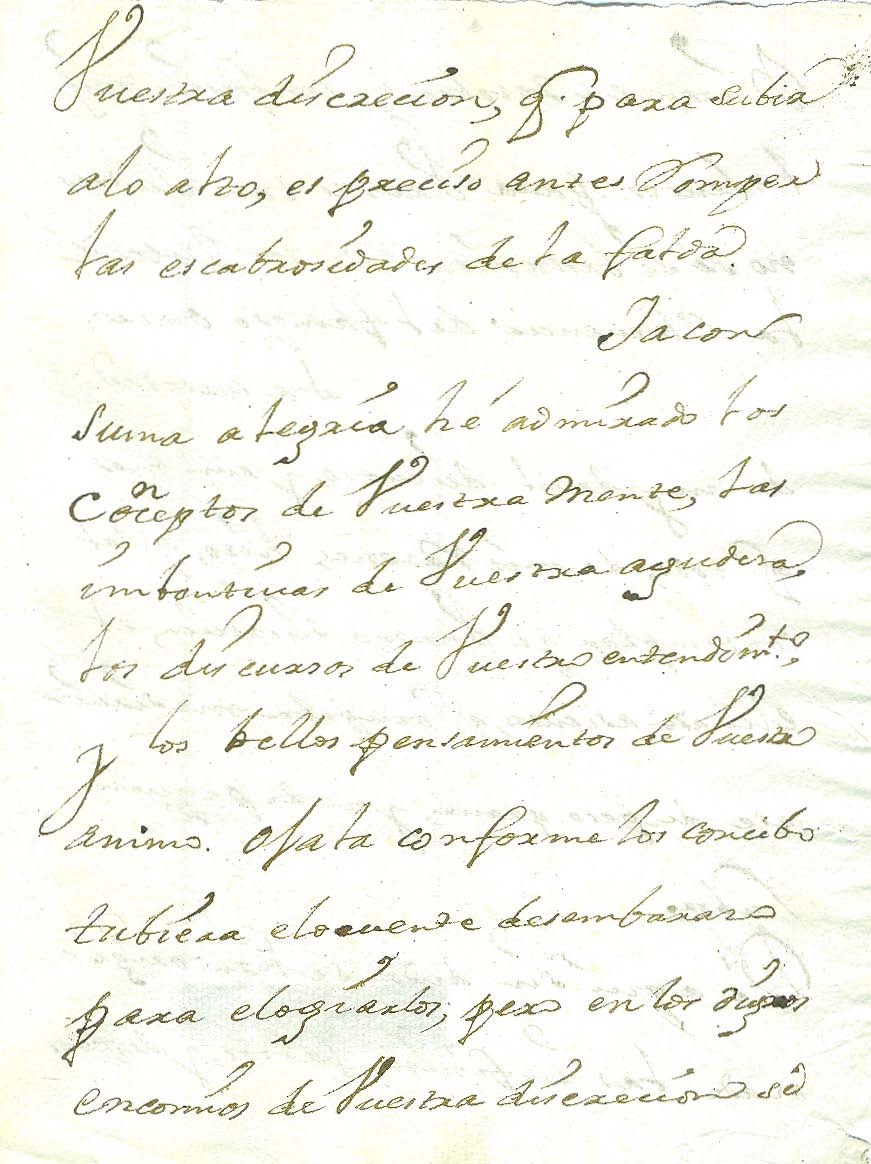 Vuestra discrecion, q. para subir
alo alto, es preciso antes Romper
las escabrosidades de la falda.
Ya con
suma alegria, hé admirado los
Conceptos de Vuestra Mente, las
imbentivas de Vuestra agudeza,
los discursos de Vuestro entendim.to,
y los bellos pensamientos de Vuestro
animo. Ojala conforme los concibo
tubiera eloquente desembarazo
para elogiarlos, pero en los dignos
encomios de Vuestra discrecion si